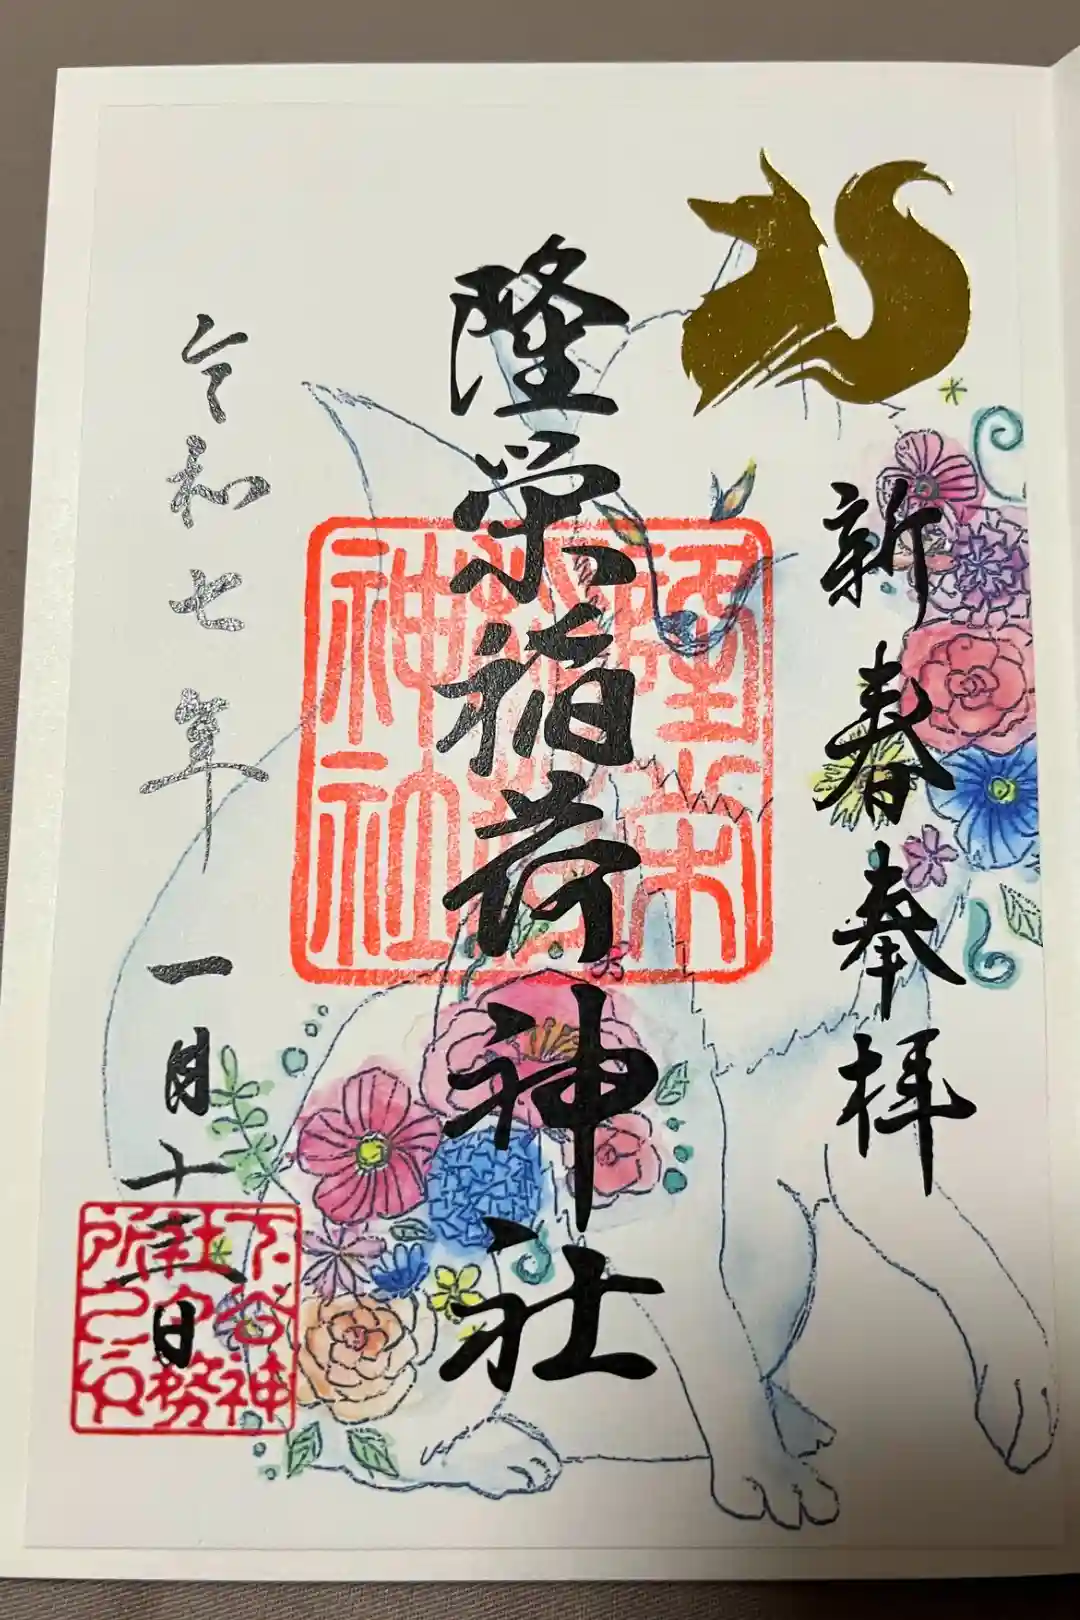 新春奉拝
隆栄稲荷神社
隆栄稲荷神社
令和七年一月十三日
下谷神社社務所之印